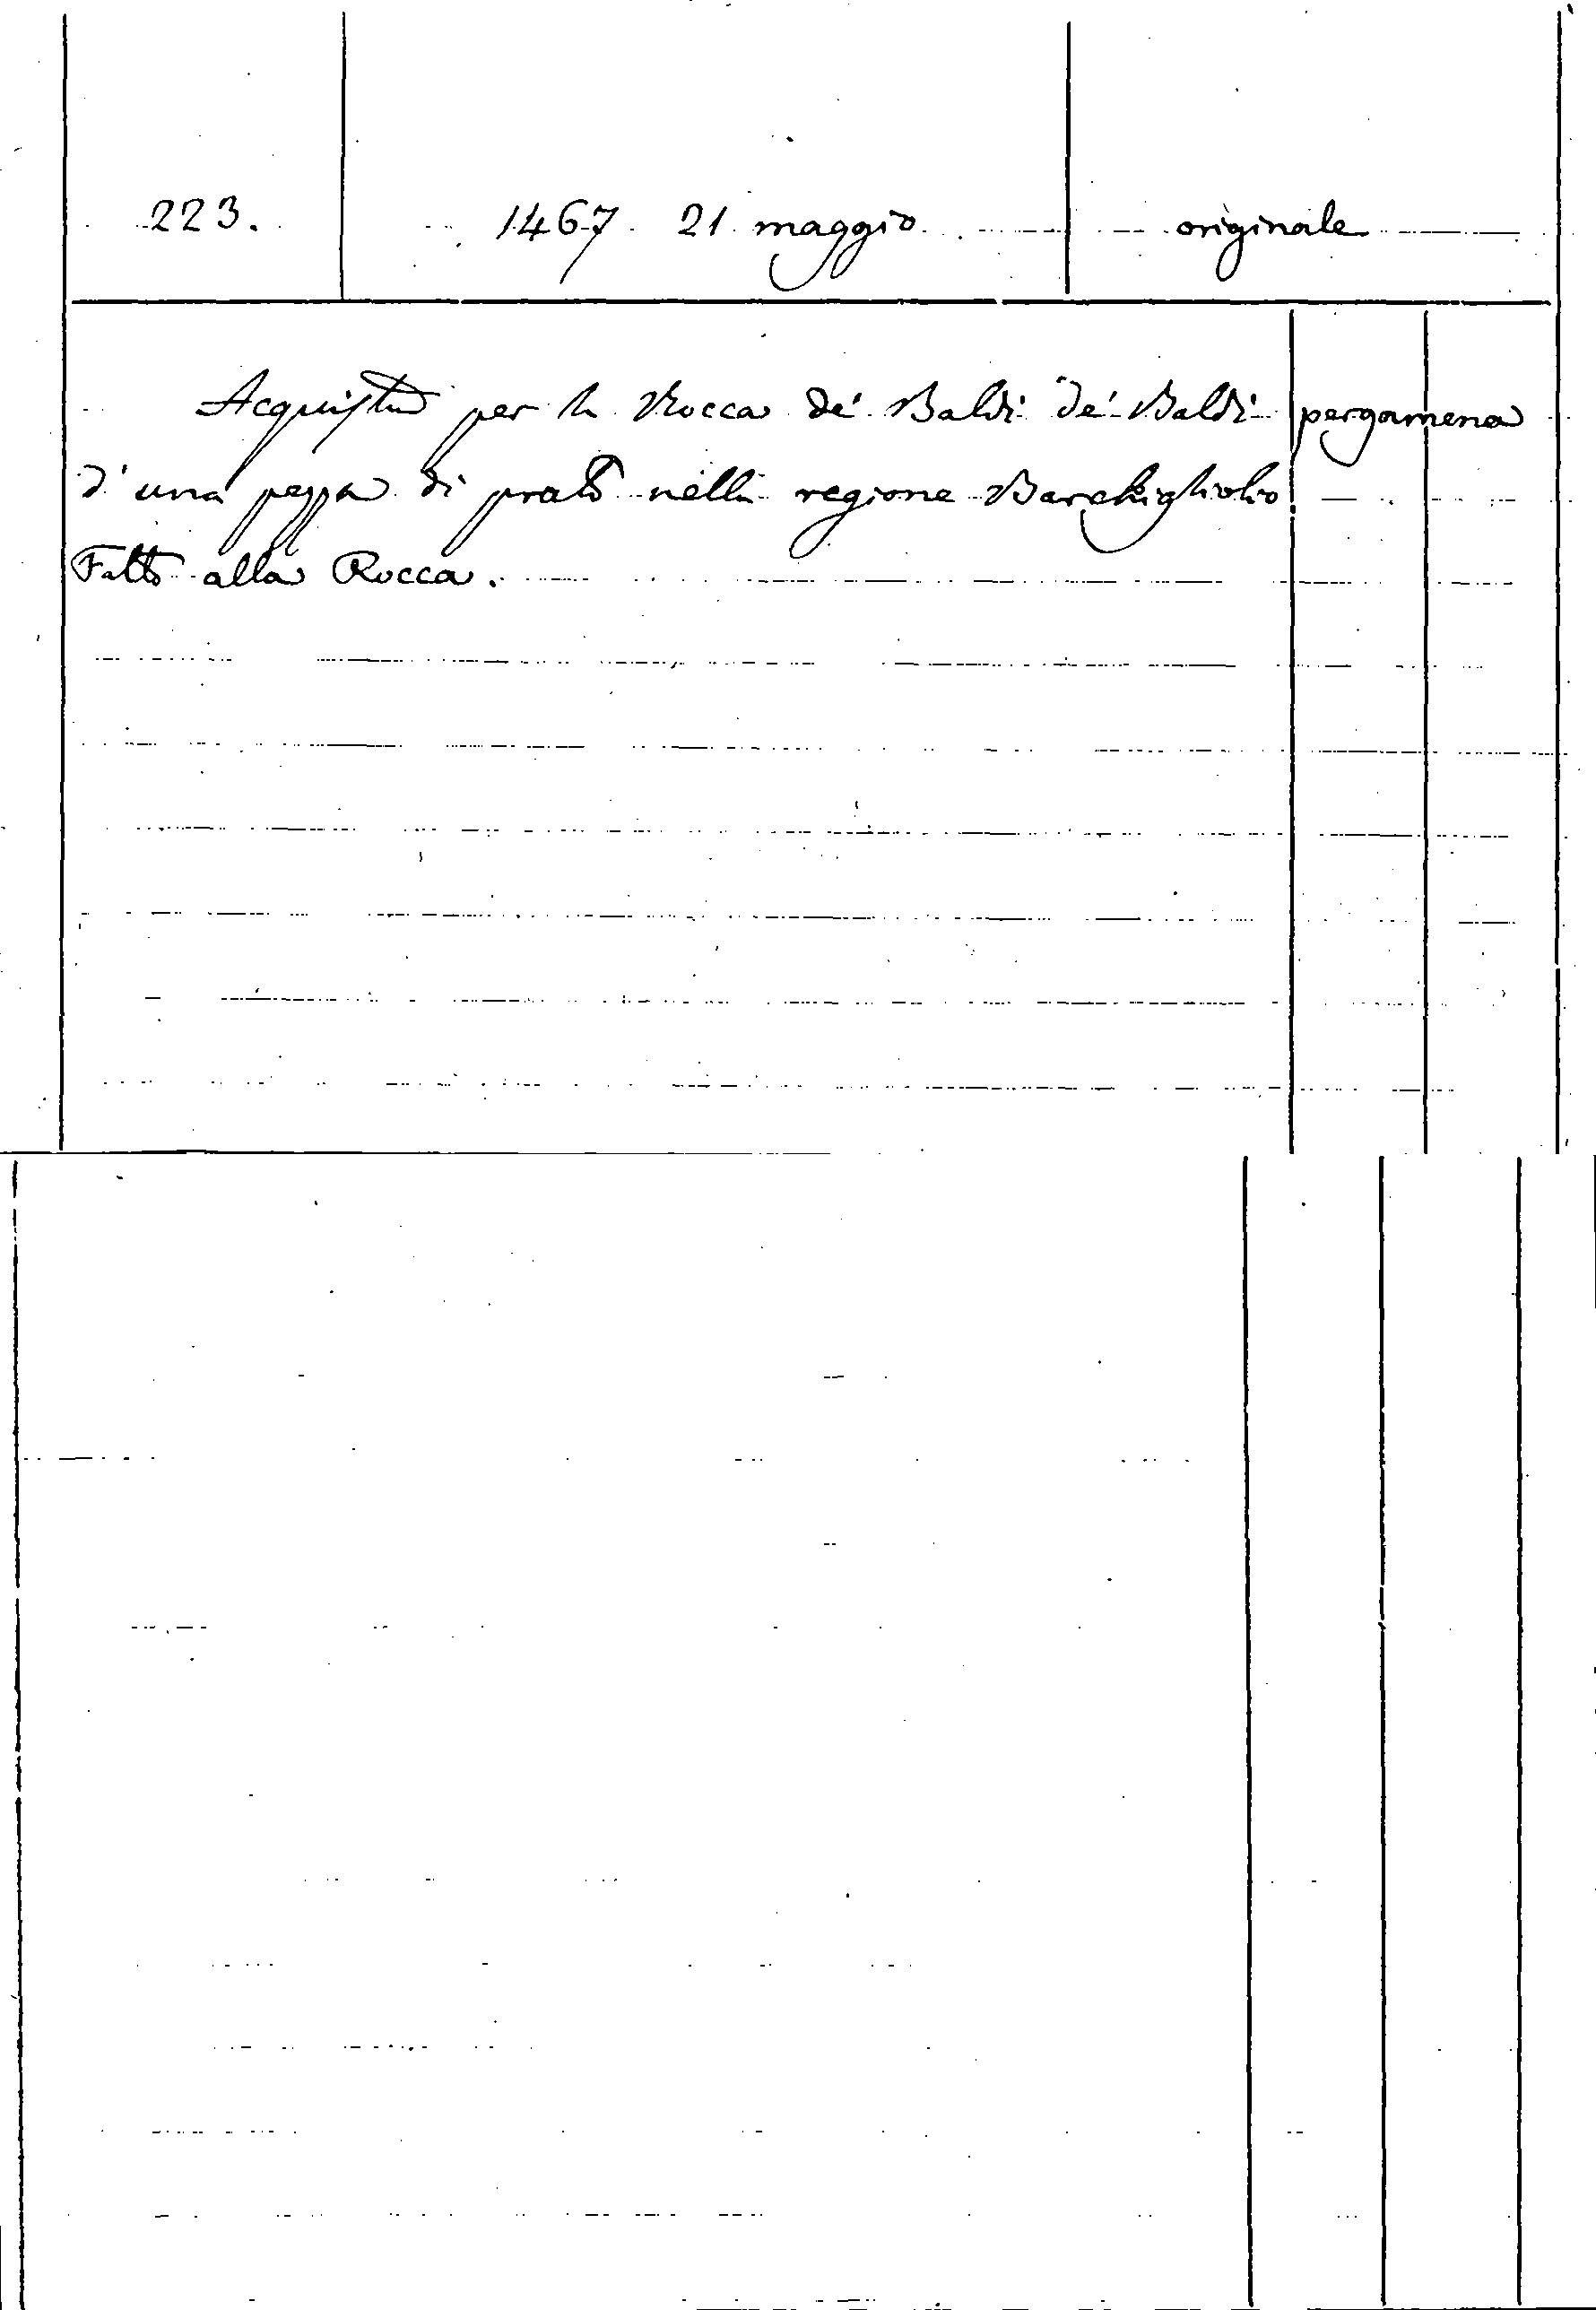 223. 1467 21 maggio originale
Acquisto per la Rocca de' Baldi de' Baldi pergamena
d'una pezza di prato nella regione Barchigliolio
Fatto alla Rocca.